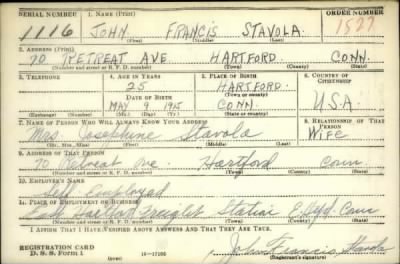 SERIAL NUMBER 1. NAME (Print) ORDER NUMBER
1116 JOHN FRANCIS STAVOLA 1527
(First) (Middle) (Last)
2. ADDRESS (Print)
70 RETREAT AVE HARTFORD CONN.
(Number and street or R. F. D. number) (Town) (County) (State)
3. TELEPHONE 4. AGE IN YEARS 5. PLACE OF BIRTH 6. COUNTRY OF CITIZENSHIP
25 HARTFORD
DATE OF BIRTH (Town or county)
MAY 9 1915 CONN. U.S.A.
(Exchange) (Number) (Mo.) (Day) (Yr.) (State or country)
7. NAME OF PERSON WHO WILL ALWAYS KNOW YOUR ADDRESS 8. RELATIONSHIP OF THAT PERSON
Mrs Josephine Stavola Wife
(Mr., Mrs., Miss) (First) (Middle) (Last)
9. ADDRESS OF THAT PERSON
70 Retreat Ave Hartford Conn
(Number and street or R. F. D. number) (Town) (County) (State)
10. EMPLOYER'S NAME
Self Employed
11. PLACE OF EMPLOYMENT OR BUSINESS
East Hartford Freight Station E. Htfd Conn
(Number and street or R. F. D. number) (Town) (County) (State)
I AFFIRM THAT I HAVE VERIFIED ABOVE ANSWERS AND THAT THEY ARE TRUE.
REGISTRATION CARD
D. S. S. FORM 1 John Francis Stavola
(Registrant's signature)